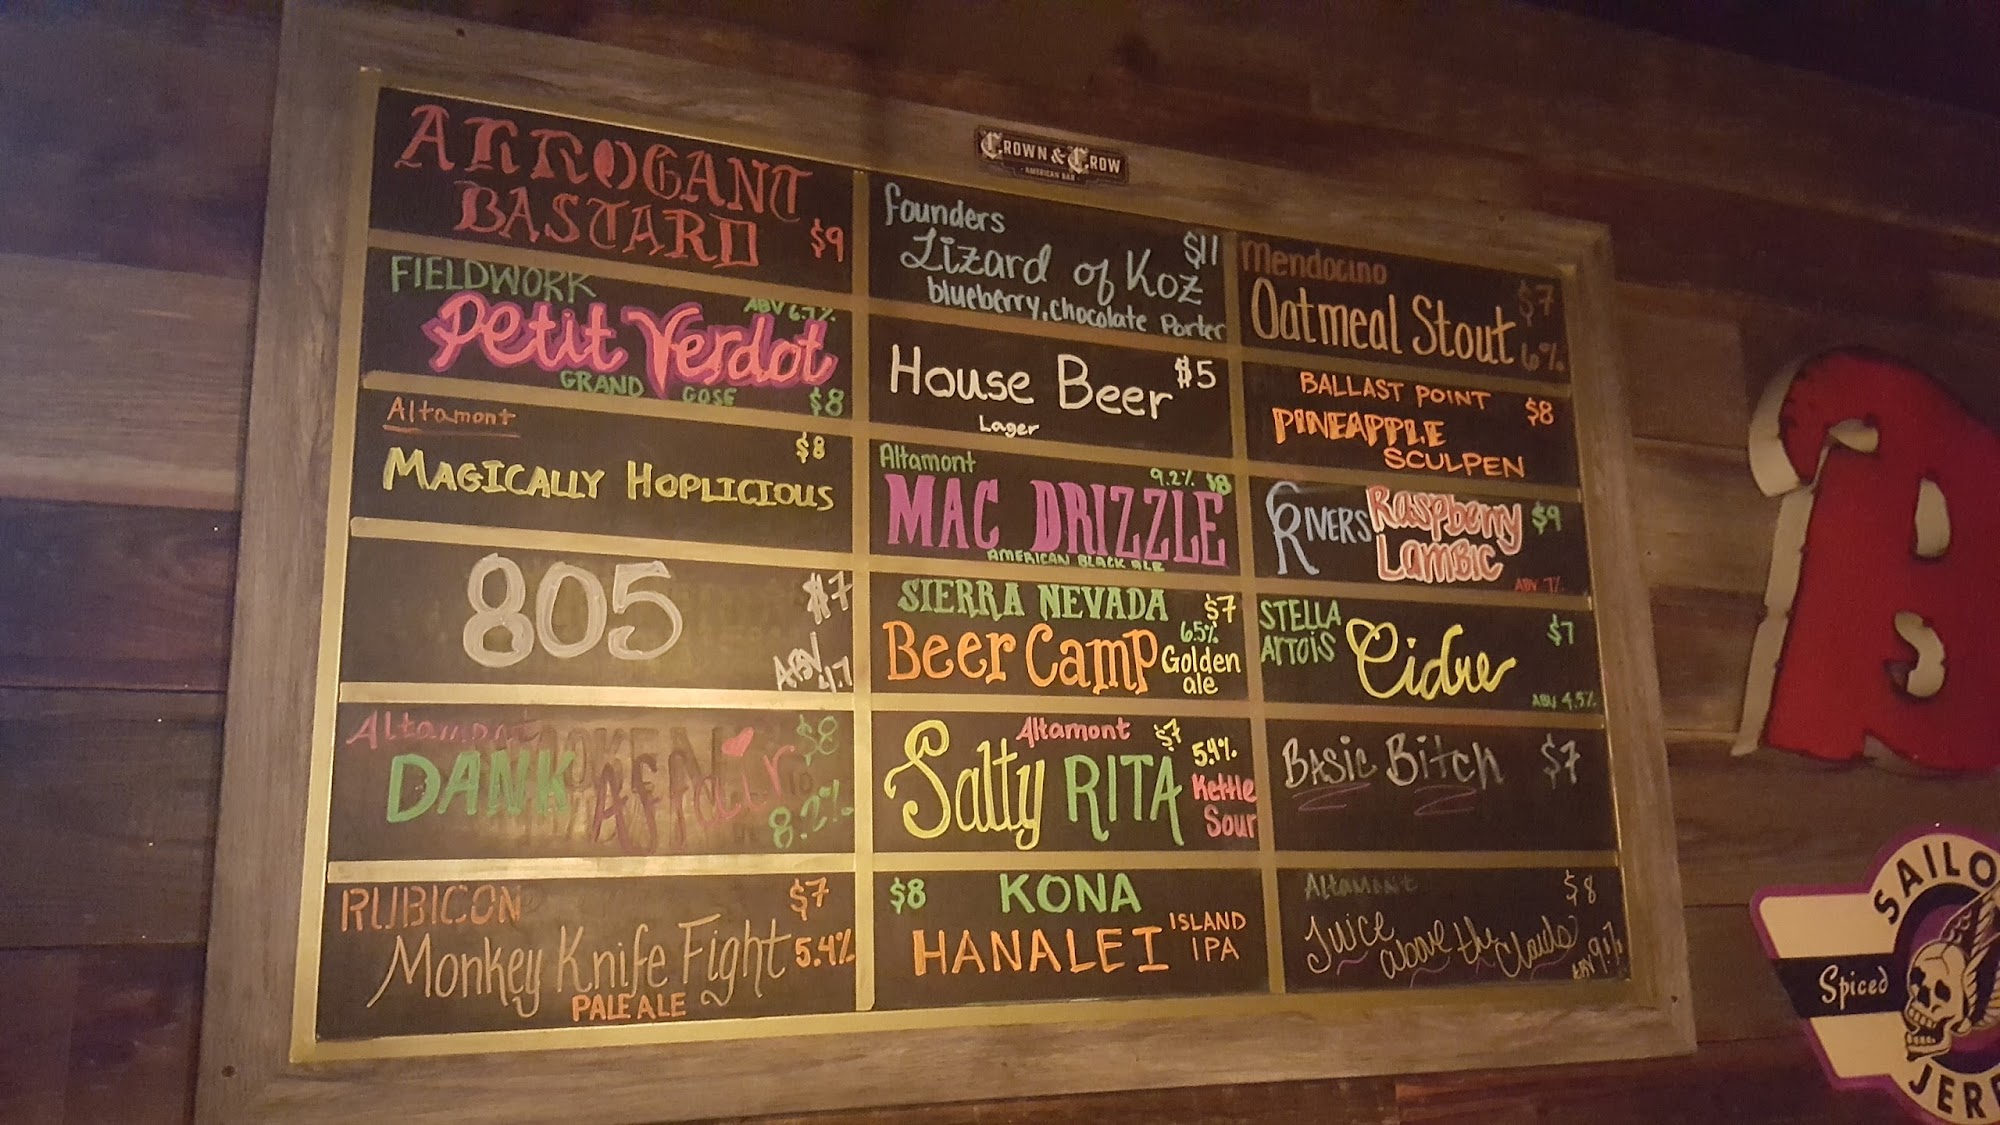 CROWN & CROW
AMERICAN BAR
ARROGANT
BASTARD $9
FIELDWORK
ABV 6.7%
Petit Verdot
GRAND GOSE $8
Altamont
$8
MAGICALLY HOPLICIOUS
805 $7
ABV
4.7
Altamont $8
DANK AFFair
8.2%
RUBICON $7
Monkey Knife Fight 5.4%
PALE ALE
founders
$11
Lizard of Koz
blueberry, chocolate Porter
House Beer $5
Lager
Altamont
9.2% $8
MAC DRIZZLE
AMERICAN BLACK ALE
SIERRA NEVADA $7
6.5%
Beer Camp Golden
ale
Altamont $7
5.4%
Salty RITA Kettle
Sour
$8 KONA
HANALEI ISLAND
IPA
Mendocino
$7
Oatmeal Stout 6%
BALLAST POINT $8
PINEAPPLE
SCULPEN
RIVERS Raspberry $9
Lambic
ABV 7%
STELLA
ARTOIS Cidre $7
ABV 4.5%
BASIC Bitch $7
Altamont $8
Juice above the Clouds
SAILO
Spiced
JER